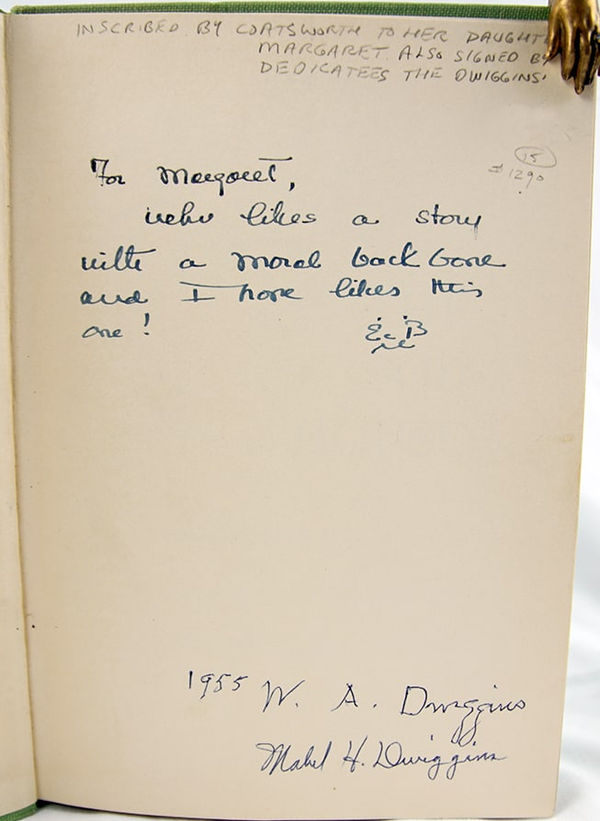 INSCRIBED BY COATSWORTH TO HER DAUGHT
MARGARET. ALSO SIGNED BY
DEDICATEES THE DWIGGINS.
15
1290
For Margaret,
who likes a story
with a moral back bone
and I hope likes this
one!
E. B
1955 W. A. Dwiggins
Mabel H. Dwiggins